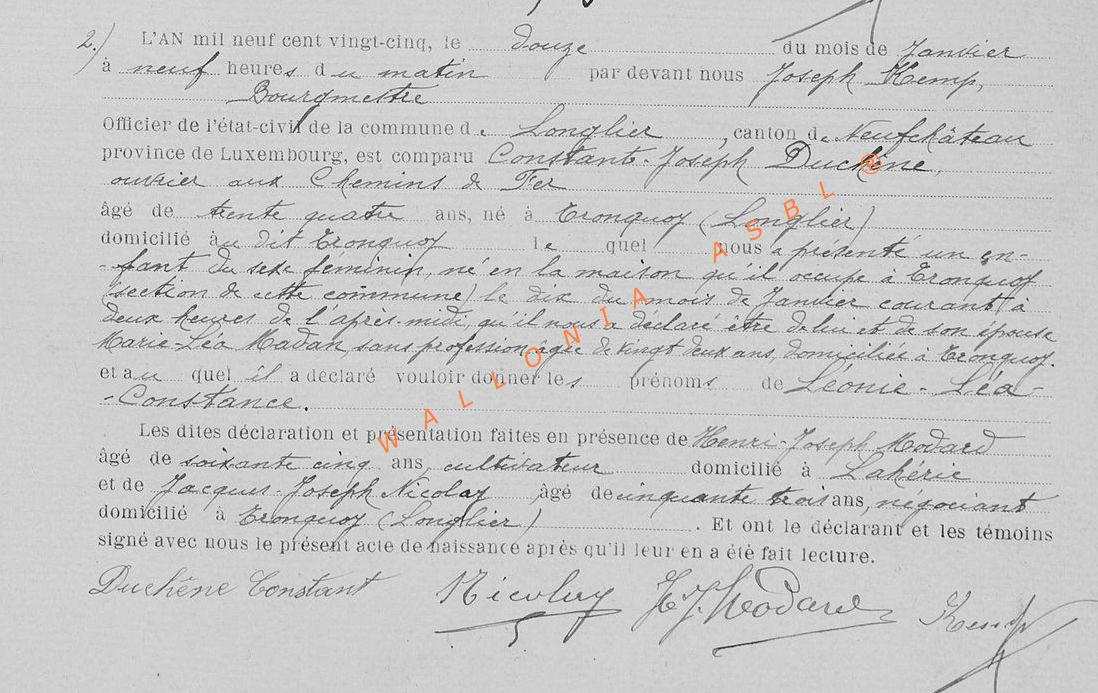 2.) L'AN mil neuf cent vingt-cinq, le douze du mois de Janvier
à neuf heures du matin par devant nous Joseph Kemp,
Bourgmestre
Officier de l'état-civil de la commune de Longlier, canton de Neufchâteau
province de Luxembourg, est comparu Constant-Joseph Duchêne,
ouvrier aux Chemins de Fer
âgé de trente quatre ans, né à Tronquoy (Longlier)
domicilié au dit Tronquoy lequel nous a présenté un en-
-fant du sexe féminin, né en la maison qu'il occupe à Tronquoy
(section de cette commune) le dix du mois de Janvier courant, à
deux heures de l'après-midi, qu'il nous a déclaré être de lui et de son épouse
Marie-Léa Madan, sans profession, âgée de vingt deux ans, domiciliée à Tronquoy.
et auquel il a déclaré vouloir donner les prénoms de Léonie-Léa-
-Constance.
Les dites déclaration et présentation faites en présence de Henri-Joseph Modard
âgé de soixante cinq ans, cultivateur domicilié à Lahérie
et de Jacques-Joseph Nicolay âgé de cinquante trois ans, négociant
domicilié à Tronquoy (Longlier). Et ont le déclarant et les témoins
signé avec nous le présent acte de naissance après qu'il leur en a été fait lecture.
Duchêne Constant Nicolay H J Modard Kemp
WALLONIA ASBL ®